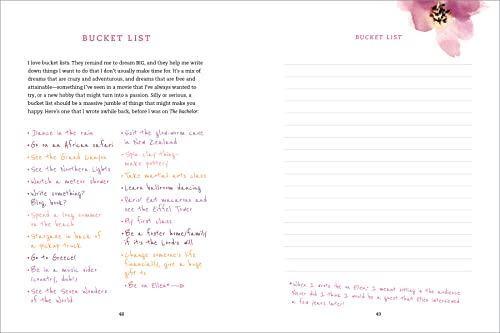 BUCKET LIST
I love bucket lists. They remind me to dream BIG, and they help me write
down things I want to do that I don't usually make time for. It's a mix of
dreams that are crazy and adventurous, and dreams that are free and
attainable—something I've seen in a movie that I've always wanted to
try, or a new hobby that might turn into a passion. Silly or serious, a
bucket list should be a massive jumble of things that might make you
happy. Here's one that I wrote awhile back, before I was on The Bachelor:
• Dance in the rain
• Go on an African safari
• See the Grand Canyon
• See the Northern Lights
• Watch a meteor shower
• Write something?
Blog, book?
• Spend a long summer
on the beach
• Stargaze in back of
a pickup truck
• Go to Greece!
• Be in a music video
(country, duh!)
• See the Seven Wonders
of the World
• Visit the glow-worm cave
in New Zealand
• Spin clay thing—
make pottery!
• Take martial arts class
• Learn ballroom dancing
• Paris! Eat macarons and
see the Eiffel Tower
• Fly first class
• Be a foster home/family
if it's the Lord's will
• Change someone's life
financially, give a huge
gift to
• Be on Ellen*
48
BUCKET LIST
*When I wrote Be on Ellen, I meant sitting in the audience.
Never did I think I would be a guest that Ellen interviewed
a few years later!
49